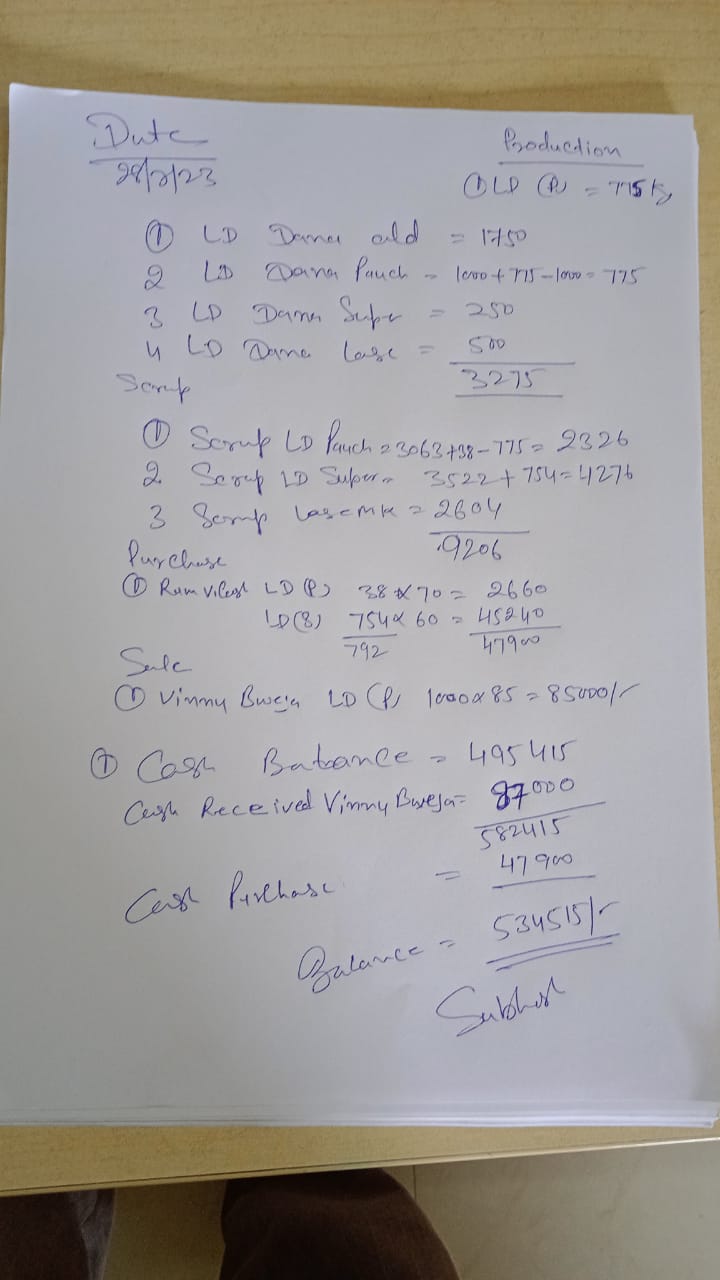 Date
Production
28/2/23
① LD (P) = 775 Kg
① LD Dana old = 1750
2 LD Dana Pauch = 1000 + 775 - 1000 = 775
3 LD Dana Super = 250
4 LD Dana Lase = 500
3275
Scrap
① Scrap LD Pauch = 3063 + 38 - 775 = 2326
2 Scrap LD Super = 3522 + 754 = 4276
3 Scrap Lase MK = 2604
9206
Purchase
① Ram Vilash LD (P) 38 x 70 = 2660
LD (S) 754 x 60 = 45240
792 47900
Sale
① Vinny Bweja LD (P) 1000 x 85 = 85000/-
① Cash Balance = 495415
Cash Received Vinny Bweja = 87000
582415
Cash Purchase = 47900
Balance = 534515/-
Subhash